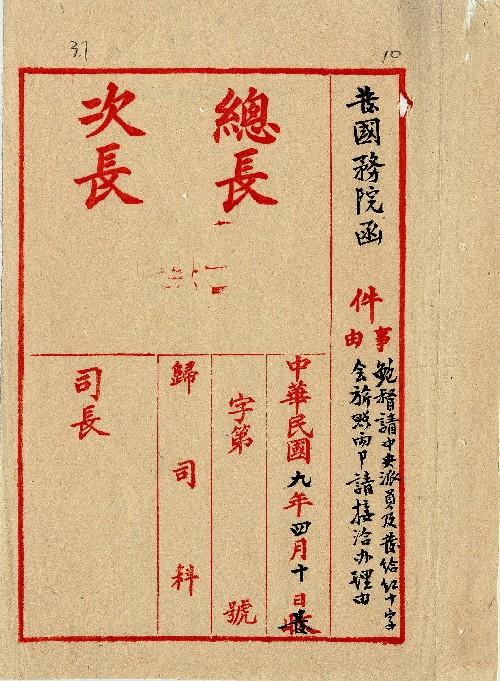 37
10
發國務院函
事由
件
鮑督請中央派員及發給紅十字
會旂照兩事請接洽办理由
總長
次長
中華民國九年四月十日發
字第
號
歸司科
司長